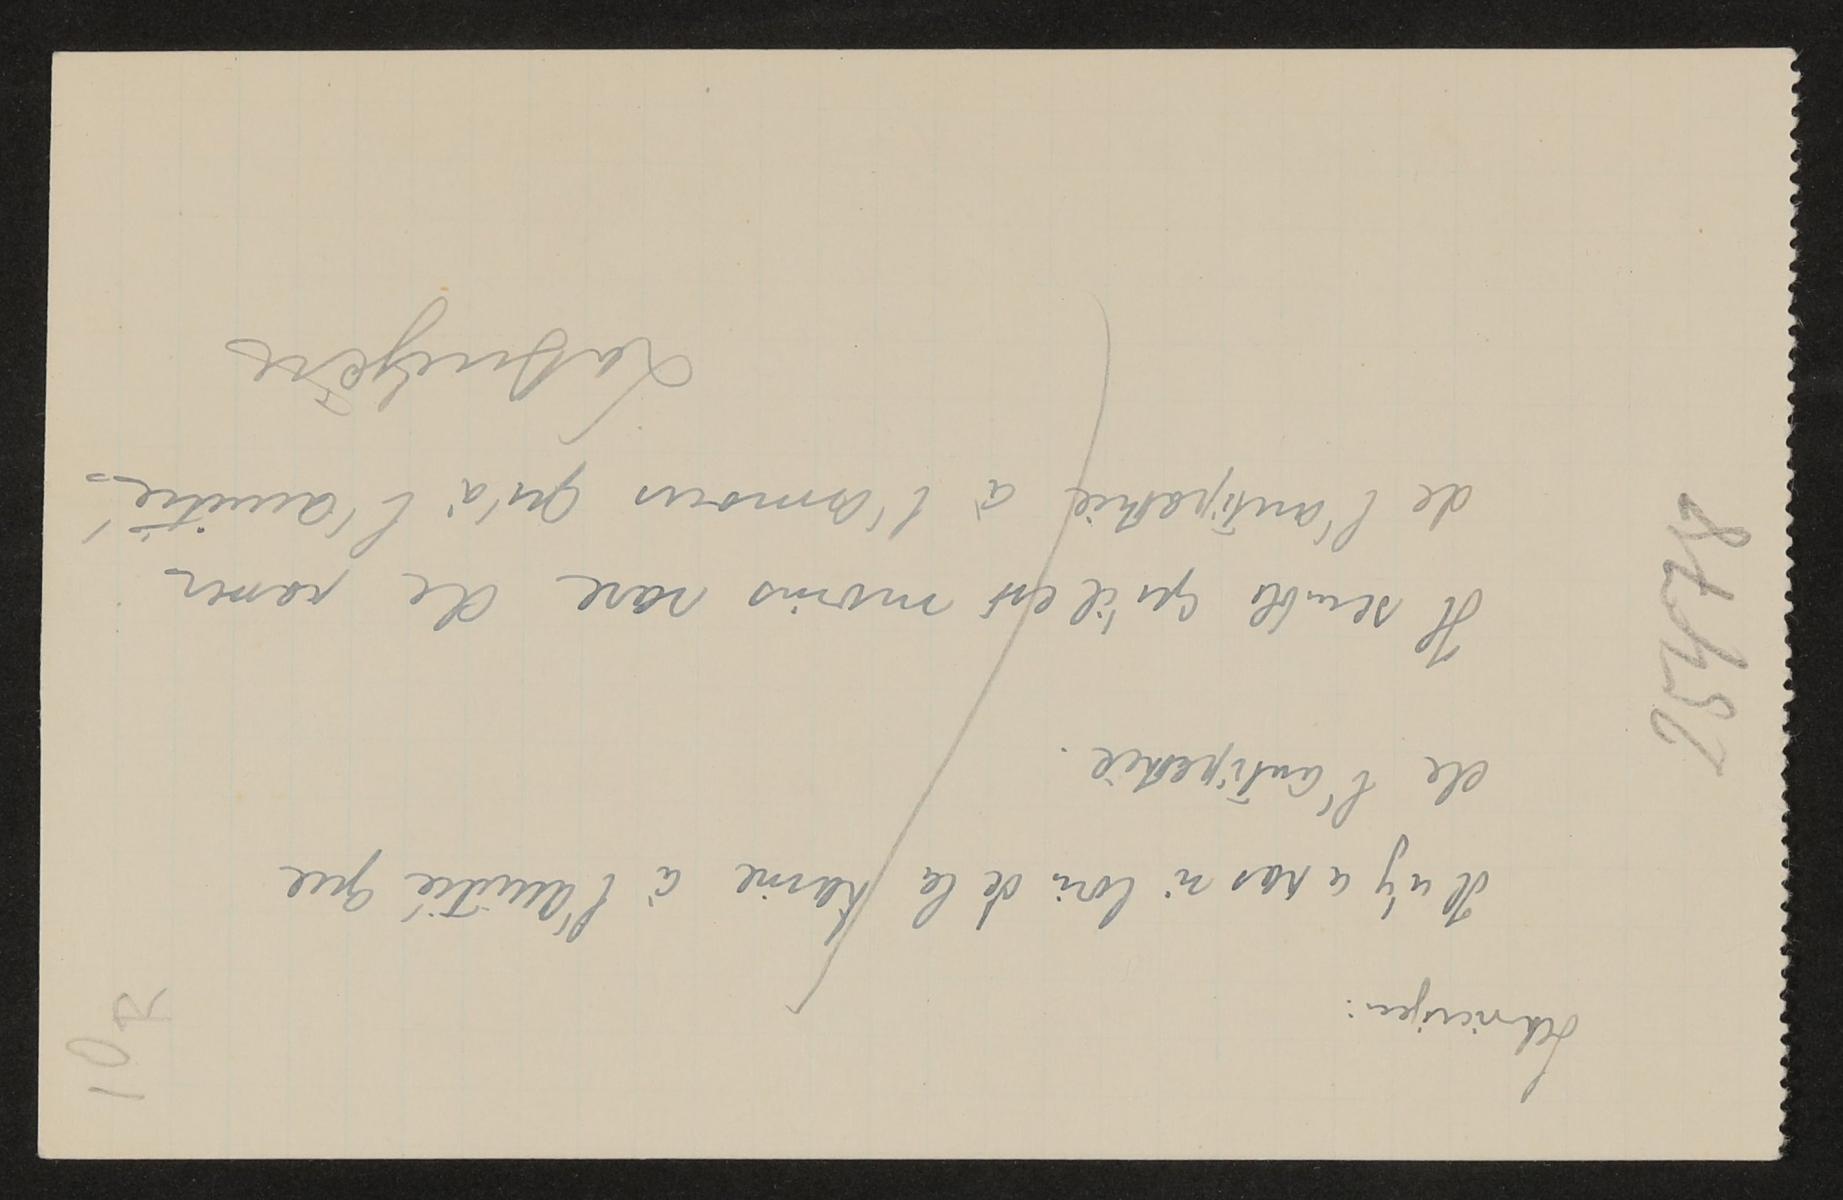 Schwierigen:
Il n'y a pas si loin de la haine à l'amitié que
de l'antipathie.
Il semble qu'il est moins rare de passer
de l'antipathie à l'amour qu'à l'amitié.
Labruyère
25478
10
R